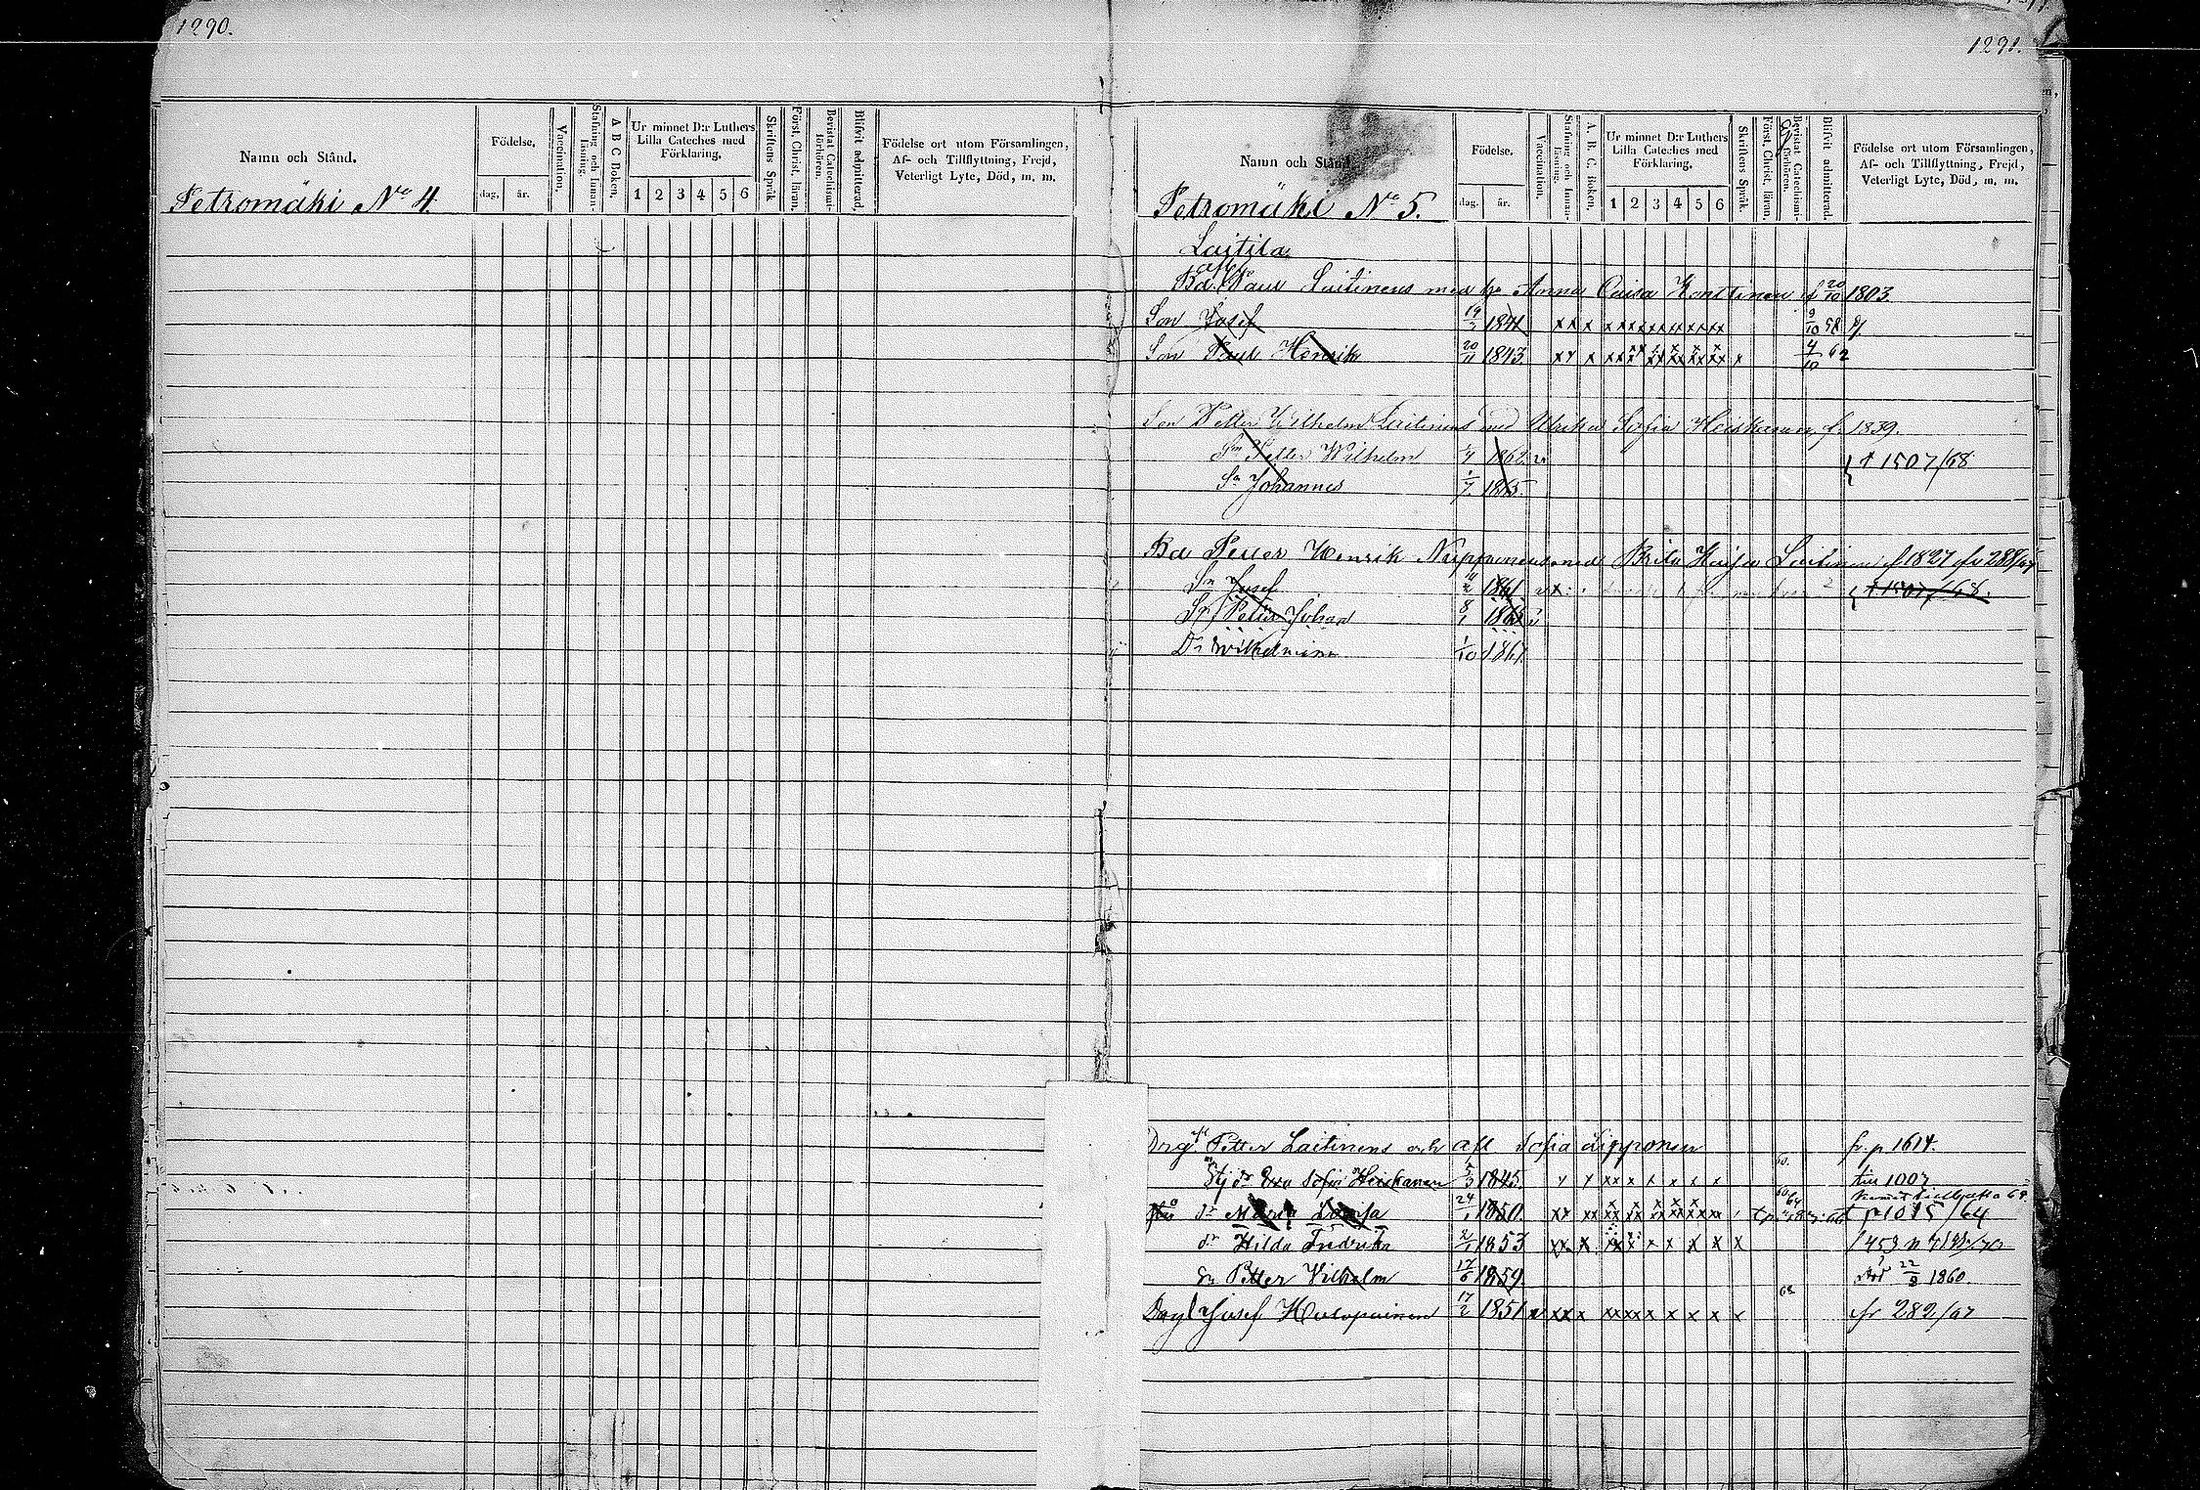 1290.
Namn och Stånd.
Födelse.
dag. år.
Vaccination.
Stafning och Innan-läsning.
A B C Boken.
Ur minnet D:r Luthers Lilla Cateches med Förklaring.
1 2 3 4 5 6
Skriftens Språk
Först. Christ. läran.
Bevistat Catechismi-förhören.
Blifvit admitterad.
Födelse ort utom Församlingen, Af- och Tillflyttning, Frejd, Veterligt Lyte, Död, m. m.
Petromäki No 4.
1291.
Namn och Stånd.
Födelse.
dag. år.
Vaccination.
Stafning och Innan-läsning.
A. B. C. Boken.
Ur minnet D:r Luthers Lilla Cateches med Förklaring.
1 2 3 4 5 6
Skriftens Språk.
Först. Christ. läran.
Bevistat Catechismi-förhören.
Blifvit admitterad.
Födelse ort utom Församlingen, Af- och Tillflyttning, Frejd, Veterligt Lyte, Död, m. m.
Petromäki No 5.
Laitila
Bd. Paul Laitinens med Anna Caisa Konttinen f 20/10 1803.
Son Josef 1841 x x x x x x x x x x x 9/10 58
Son Paul Henrik 20/11 1843. x x x x x x x x x x 4/10 62
Son Petter Wilhelm Laitinens med Ulrika Sofia Heiskanen f. 1839.
Sn Petter Wilhelm 1862 1507/68
Sn Johannes 1/7 1865.
Bd Petter Henrik Nupponens med Brita Kaisa Laitinen f 1827 fr 288/67
Sn Josef 1861 1507/68.
Sn Petter Johan
Dr Wilhelmina 1/10 1867
Drg Petter Laitinens och afl Sofia Lipponen fr. p 1614.
Stj dr Eva Sofia Heiskanen 5/3 1845 x x x x x x x x 60. till 1007
dr Maria Lovisa 24/1 1850. x x x x x x x p 1015/64
dr Hilda Fredrika 2/1 1853 x x x x x x x x x
Sn Petter Vilhelm 17/6 1859. död 22/8 1860
Josef Hulopainen 17/2 1851 x x x x x x x x x x fr 282/67